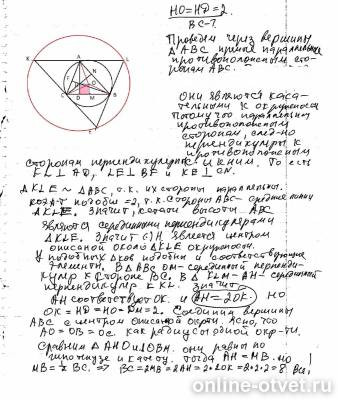 HO=HD=2.
BC-?
Проведем через вершины
ΔABC прямые параллельные
противоположным сто-
ронам ABC.
K A L
N
F O
C D M B
E
Они являются каса-
тельными к окружности
Потому что параллельны
противоположным
сторонам, след-но
перпендикулярны к
противоположным
сторонам перпендикулярны к ним. То есть
KL⊥AD, LE⊥BE и KE⊥CN.
ΔKLE ~ ΔABC, т.к. их стороны параллельны.
коэф-т подобия =2, т.к. стороны ABC- средние линии
ΔKLE. Значит, высоты ABC
являются серединными перпендикулярами
ΔKLE. Значит т.H является центром
описанной около ΔKLE окружности.
У подобных Δков подобны и соответствующие
элементы. В ΔABC OM- серединный перпенди-
куляр к стороне BC. В ΔKLE -AH- серединный
перпендикуляр к KL. Значит
AH соответствует OK. и AH=2OK. но
OK=HD=HO=DM=2. Соединим вершины
ABC с центром описанной окр-ти. Ясно, что
AO=OB=OC. как радиусы одной окр-ти.
Сравним ΔAHO и ΔOBM. они равны по
гипотенузе и катету. Тогда AH=MB. но
MB=½BC. => BC=2MB=2AH=2·2OK=2·2·2=8 Все!
online-otvet.ru